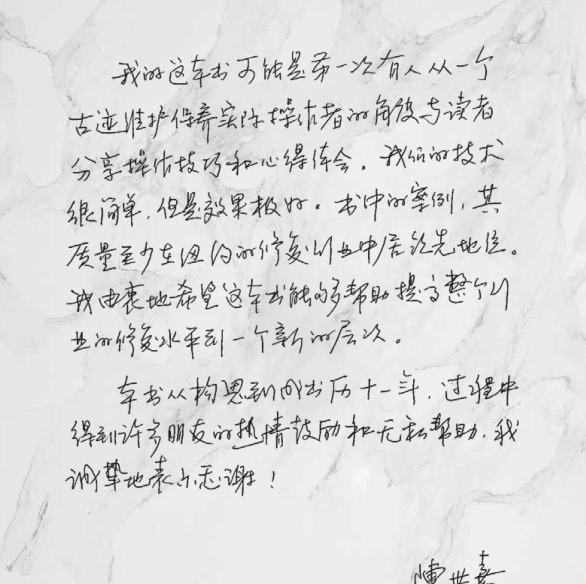 我的这本书可能是第一次有人从一个
古迹维护保养实际操作者的角度与读者
分享操作技巧和心得体会。我们的技术
很简单，但是效果极好。书中的案例，其
质量至少在纽约的修复行业中居领先地位。
我由衷地希望这本书能够帮助提高整个行
业的修复水平到一个新的层次。
本书从构思到成书历十一年，过程中
得到许多朋友的热情鼓励和无私帮助，我
诚挚地表示感谢！